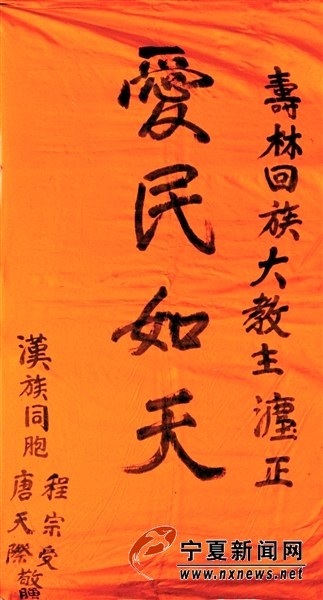 壽林回族大教主正
愛民如天
漢族同胞
程宗受
唐天際敬贈
宁夏新闻网
www.nxnews.net